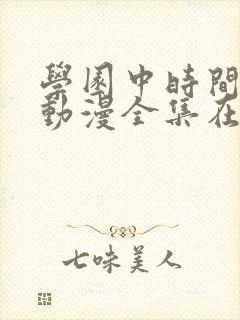 學園中時間
動漫全集在
七味美人